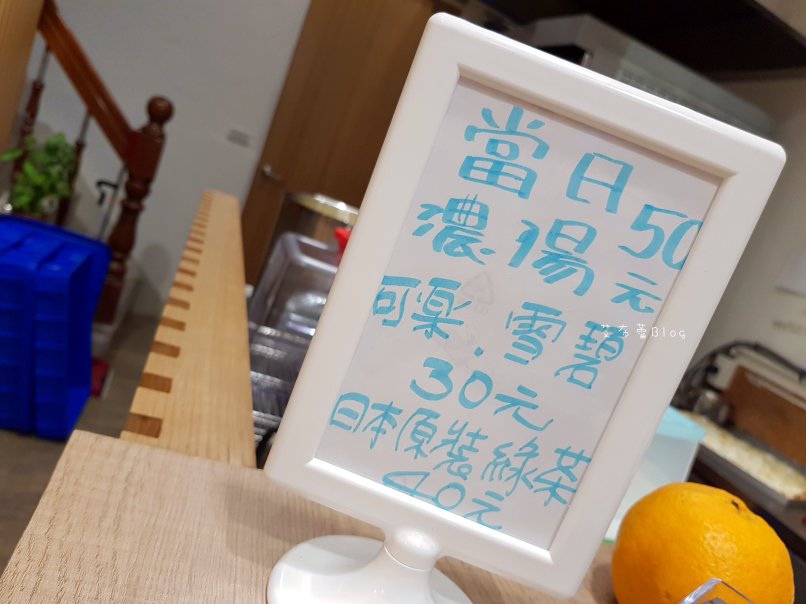 當日
濃湯50元
可樂.雪碧
30元
日本原裝綠茶
40元
艾布蕾Blog